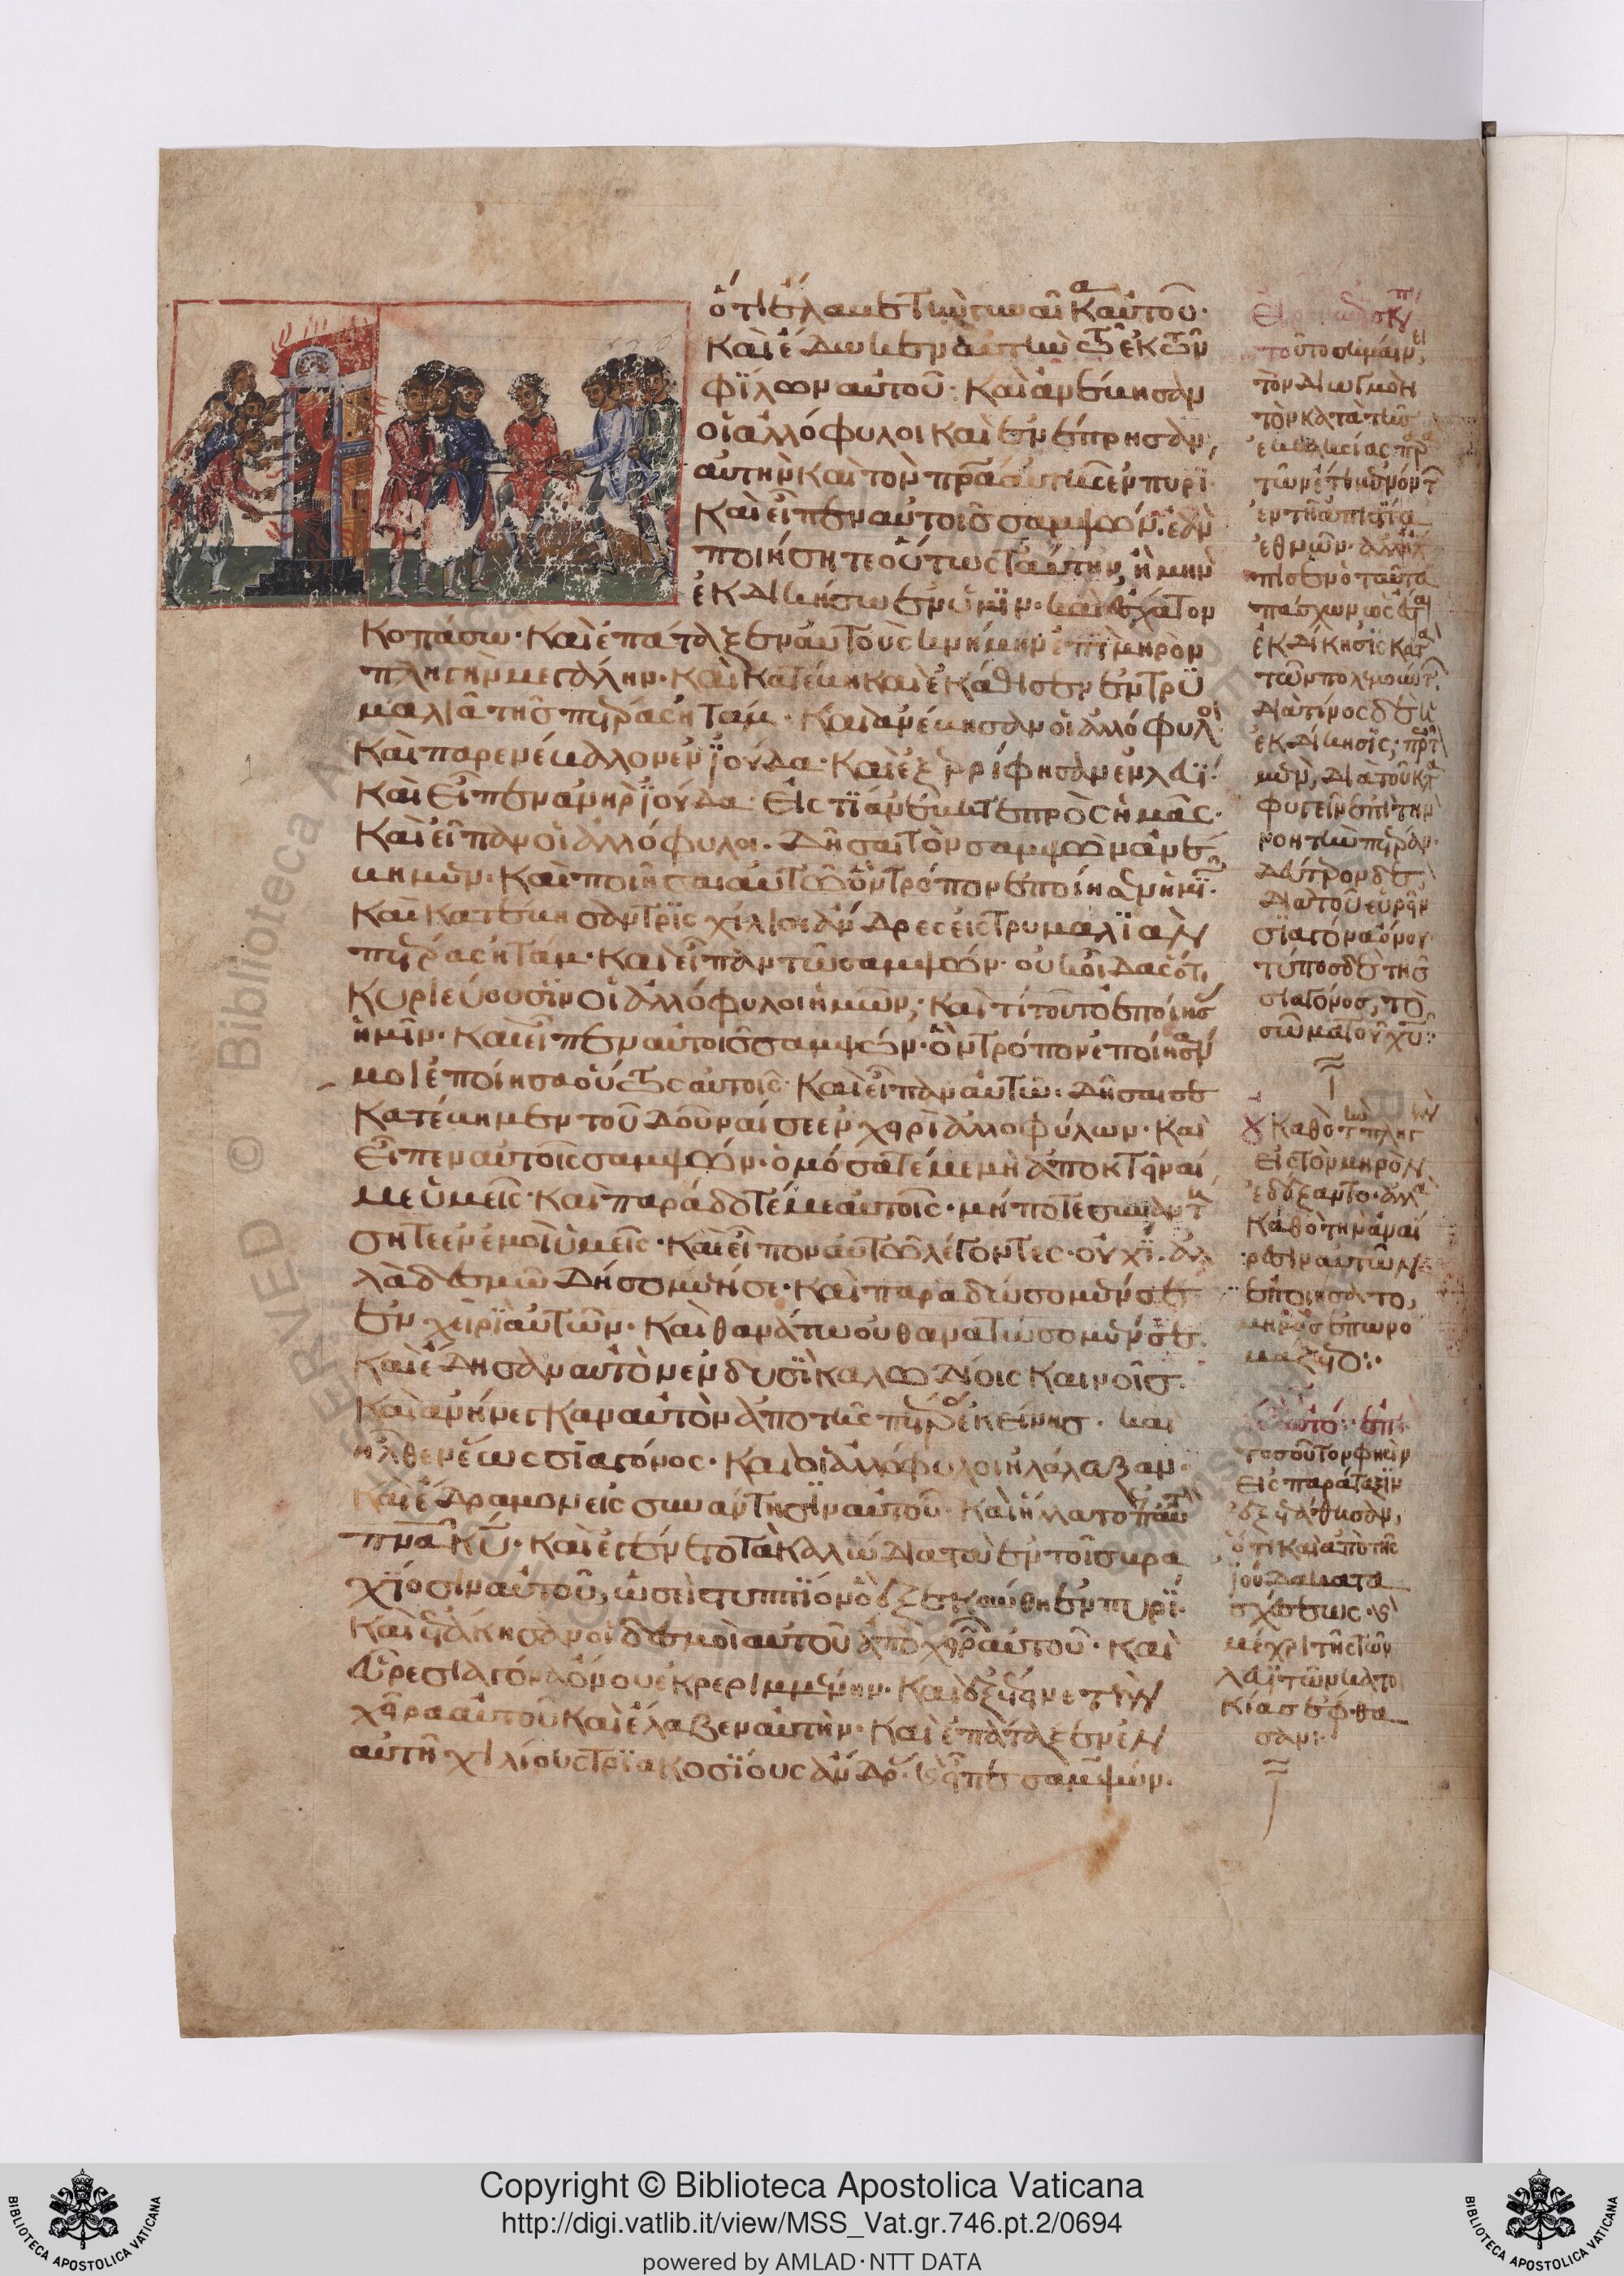 ὅτι ἔλαβε τὴν γυναῖκα αὐτοῦ·
καὶ ἔδωκεν αὐτὴν τῷ ἐκ τῶν
φίλων αὐτοῦ· καὶ ἀνέβησαν
οἱ ἀλλόφυλοι καὶ ἐνέπρησαν
αὐτὴν καὶ τὸν πρᾶ αὐτῆς ἐν πυρί·
καὶ εἶπεν αὐτοῖς σαμψών· ἐὰν
ποιήσητε οὕτως ταύτην, ἢ μὴν
ἐκδικήσω ἐν ὑμῖν· καὶ ἔσχατον
κοπάσω· καὶ ἐπάταξεν αὐτοὺς κνήμην ἐπὶ μηρὸν
πληγὴν μεγάλην· καὶ κατέβη καὶ ἐκάθισεν ἐν τρυ
μαλιᾶ τῆς πέτρας ἠτάμ· καὶ ἀνέβησαν οἱ ἀλλόφυλοι
καὶ παρενέβαλον ἐν ἰούδα· καὶ ἐξερρίφησαν ἐν λεΐ·
καὶ εἶπεν ἀνὴρ ἰούδα· εἰς τί ἀνέβητε πρὸς ἡμᾶς·
καὶ εἶπαν οἱ ἀλλόφυλοι· δῆσαι τὸν σαμψὼν ἀνέ
βημεν· καὶ ποιῆσαι αὐτῷ ὃν τρόπον ἐποίησεν ἡμῖν·
καὶ κατέβησαν τρὶς χίλιοι ἄνδρες εἰς τρυμαλιὰν
πέτρας ἠτάμ· καὶ εἶπαν τῷ σαμψών· οὐκ οἶδας ὅτι
κυριεύουσιν οἱ ἀλλόφυλοι ἡμῶν; καὶ τί τοῦτο ἐποίησας
ἡμῖν· καὶ εἶπεν αὐτοῖς σαμψών· ὃν τρόπον ἐποίησάν
μοι ἐποίησα οὕτως αὐτοῖς· καὶ εἶπαν αὐτῷ· δῆσαί σε
κατέβημεν τοῦ δοῦναί σε ἐν χειρὶ ἀλλοφύλων· καὶ
εἶπεν αὐτοῖς σαμψών· ὀμόσατέ με μὴ ἀποκτεῖναί
με ὑμεῖς· καὶ παράδοτέ με αὐτοῖς· μήποτε συναντή
σητε ἐν ἐμοὶ ὑμεῖς· καὶ εἶπον αὐτῷ λέγοντες· οὐχί· ἀλ
λὰ δεσμῷ δήσομέν σε· καὶ παραδώσομέν σε
ἐν χειρὶ αὐτῶν· καὶ θανάτω οὐ θανατώσομέν σε·
καὶ ἔδησαν αὐτὸν ἐν δυσὶ καλωδίοις καινοῖς·
καὶ ἀνήνεγκαν αὐτὸν ἀπὸ τῆς πέτρας ἐκείνης· καὶ
ἦλθεν ἕως σιαγόνος· καὶ οἱ ἀλλόφυλοι ἠλάλαξαν·
καὶ ἔδραμον εἰς συνάντησιν αὐτοῦ· καὶ ἥλατο ἐπ αὐτὸν
πνᾶ κυ· καὶ ἐγένετο τὰ καλώδια τὰ ἐν τοῖς βρα
χίοσιν αὐτοῦ, ὡσεὶ στυππίον ὃ ἐξεκαύθη ἐν πυρί·
καὶ ἐτάκησαν οἱ δεσμοὶ αὐτοῦ ἀπὸ χειρῶν αὐτοῦ· καὶ
εὗρε σιαγόνα ὄνου ἐκρεριμμένην· καὶ ἐξέτεινε τὴν
χεῖρα αὐτοῦ καὶ ἔλαβεν αὐτήν· καὶ ἐπάταξεν ἐν
αὐτῇ χιλίους τριακοσίους ἄνδρας· καὶ εἶπε σαμψών·
τοῦτο σημαίνει
τὸν διωγμὸν
τὸν κατὰ τῆς
ἐκκλησίας παρὰ
ἐν τῇ ἀπιστία
ἐθνῶν·
πάσχων ὡς
ἐκδίκησις κατὰ
τῶν πολεμούντων
διὰ τίνος δὲ ἡ
ἐκδίκησις;
διὰ τοῦ κατα
φυγεῖν ἐπὶ τὴν
νοητὴν πέτραν·
δεύτερον δὲ
διὰ τοῦ εὑρεῖν
σιαγόνα ὄνου
τύπος δὲ τῆς
σιαγόνος, τὸ
σῶμα τοῦ χυ:
καθὸ τ πληγὴν
εἰς τὸν μηρὸν
ἐδέξαντο· ἀλλὰ
καθὸ τὴν ἀναί
ρεσιν αὐτῶν
ἐποιήσατο,
μηρὸς ἐπωνο
μάζεται:
τοσοῦτον
εἰς παράταξιν
ὅτι καὶ ἀπὸ τῆς
ἰούδα κατα
σχέσεως
μέχρι τῆς τῶν
λευϊτῶν κατοι
κίας ἔφθα
σαν:
Copyright © Biblioteca Apostolica Vaticana
http://digi.vatlib.it/view/MSS_Vat.gr.746.pt.2/0694
powered by AMLAD·NTT DATA
BIBLIOTECA APOSTOLICA VATICANA
BIBLIOTECA APOSTOLICA VATICANA